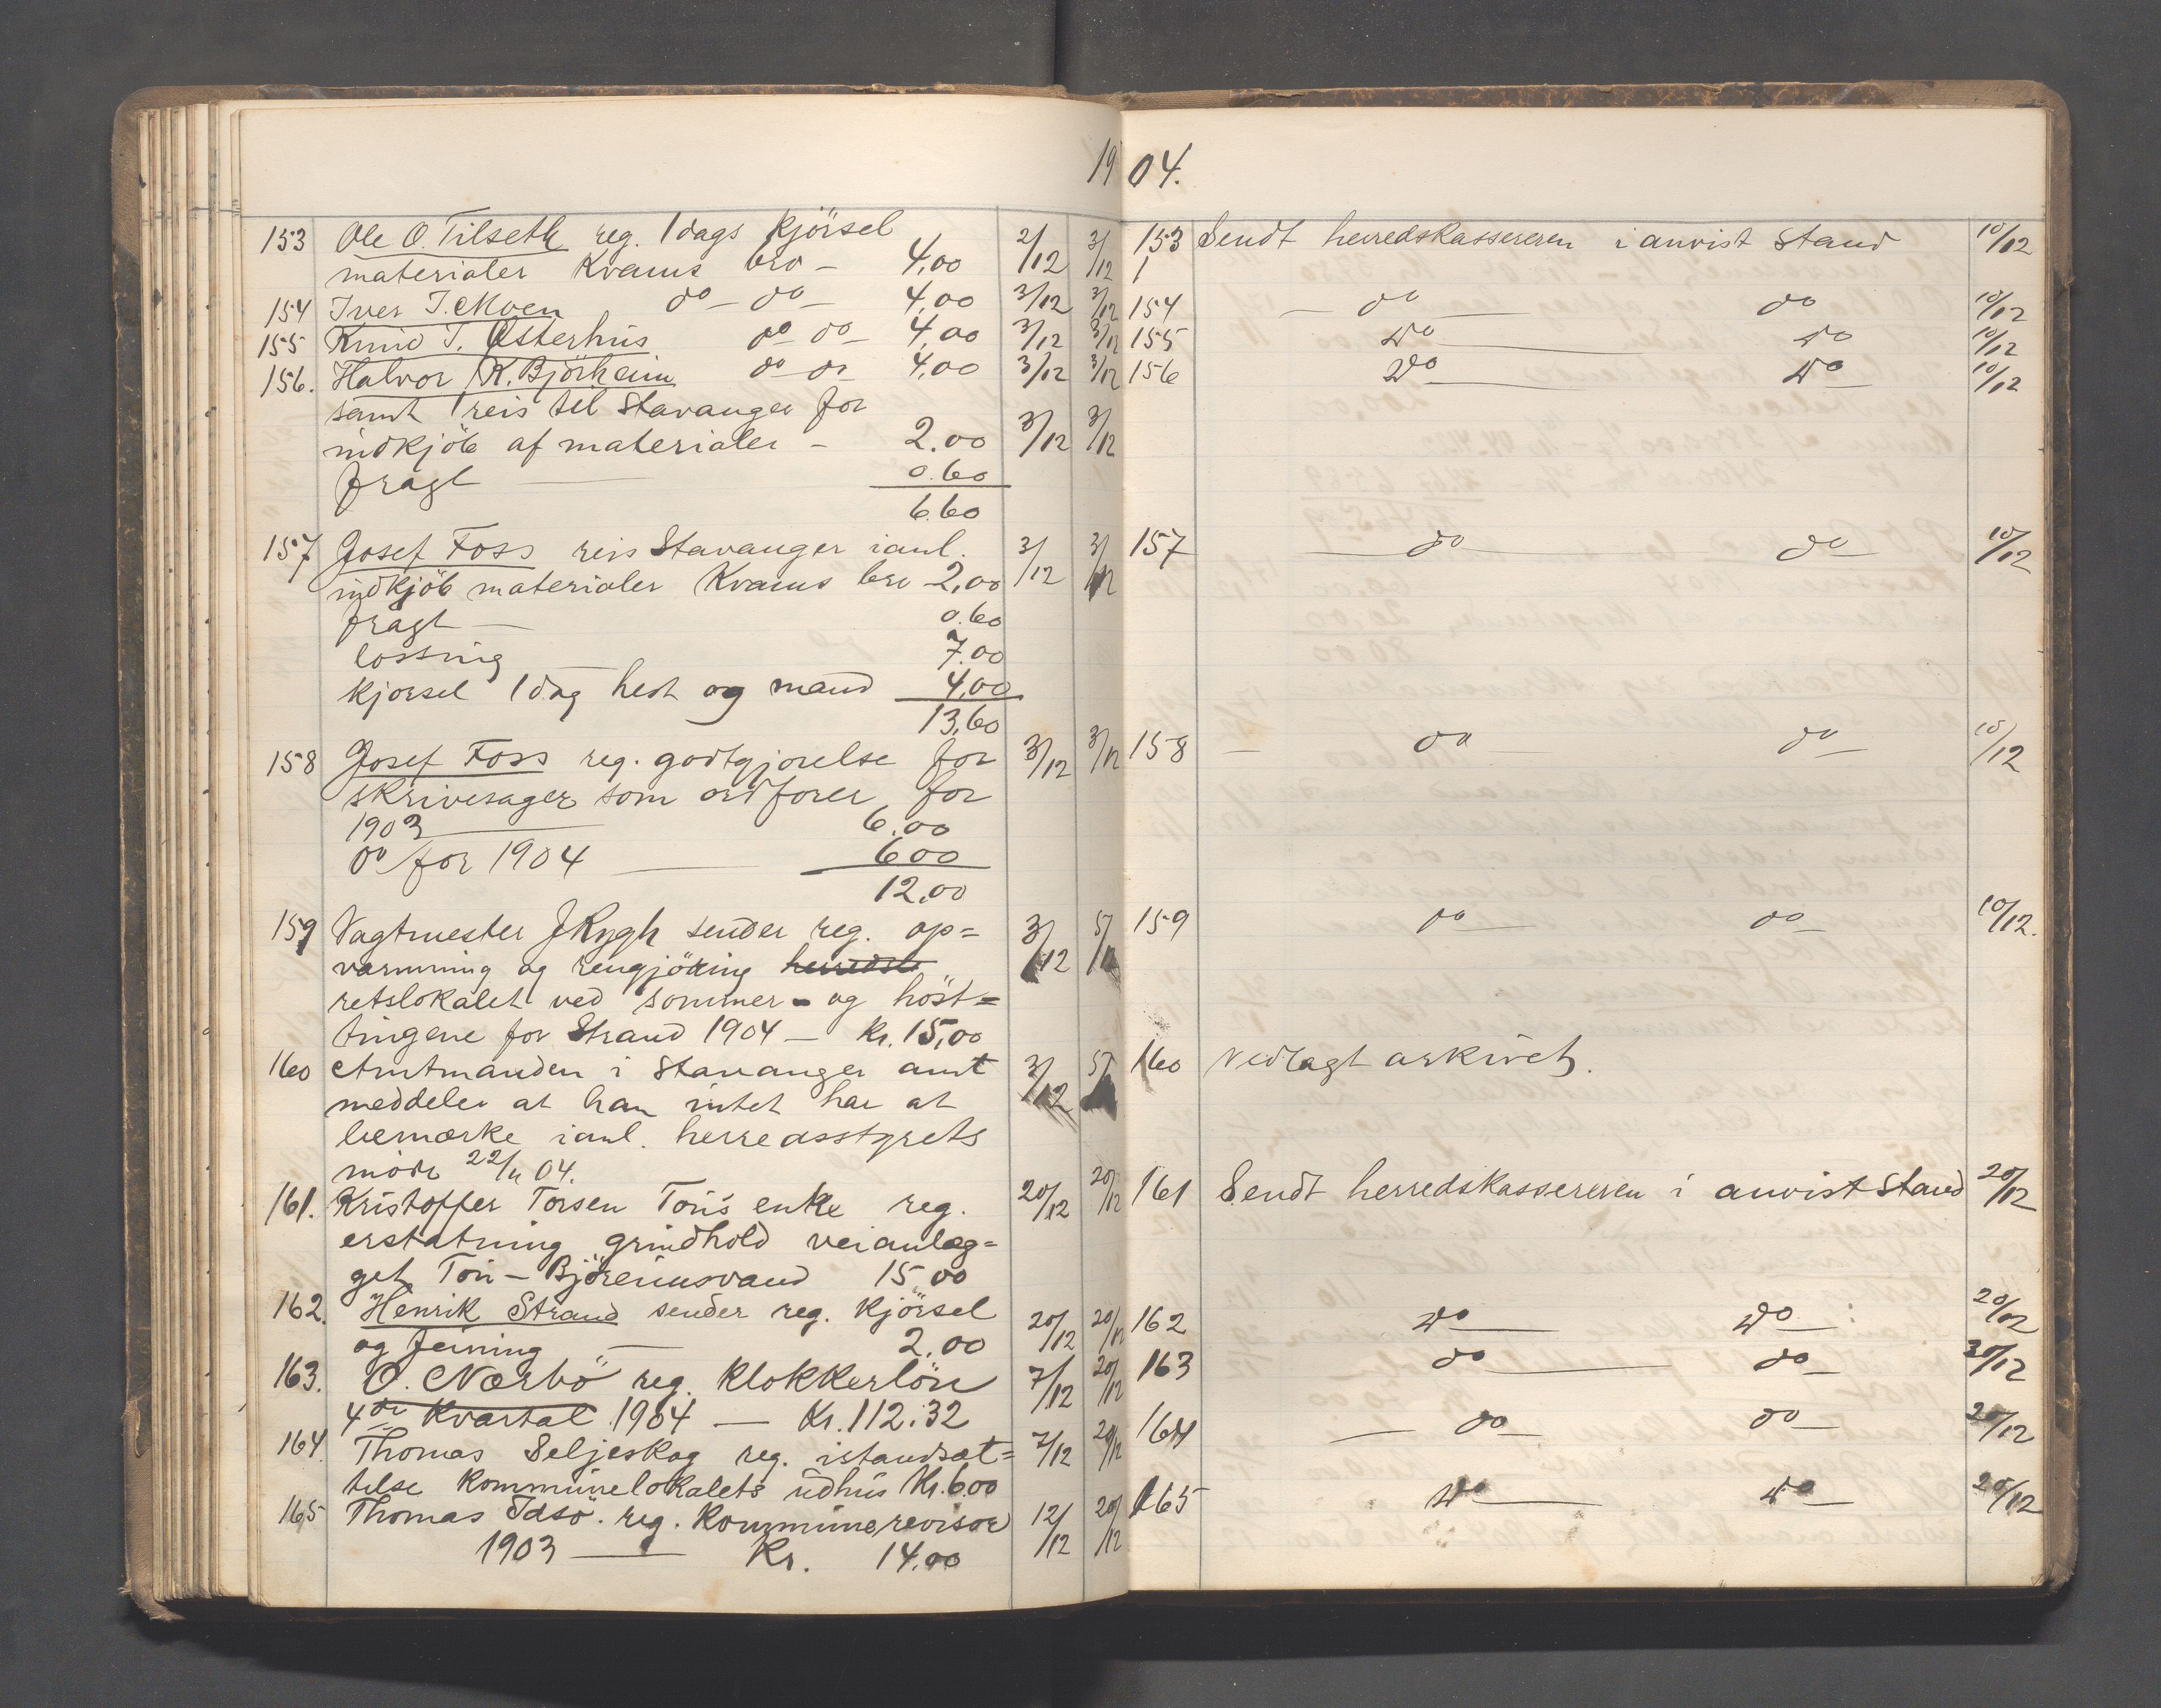 1904.
153 Ole O. Tilseth reg. 1 dags kjörsel 2/12 3/12
materialer Kvams bro – 4,00
154 Iver T. Moen do – do – 4,00 3/12 3/12
155 Knud T. Østerhus do do – 4,00 3/12 3/12
156. Halvor K. Björheim do do 4,00 3/12 3/12
samt 1 reis til Stavanger for
indkjöb af materialer – 2.00 3/12 3/12
fragt — 0.60
6.60
157 Josef Foss reis Stavanger ianl. 3/12 3/12
indkjöb materialer Kvams bro 2,00
fragt — 0.60
lossing — 7.00
kjorsel 1 dag hest og mand 4,00
13,60
158 Josef Foss reg. godtgjorelse for 3/12 3/12
skrivesager som ordforer for
1903 — 6.00
do for 1904 — 6.00
12,00
159 Vagtmester J Rygh sender reg. op= 3/12 5/12
varmning og rengjöring herredsl
retslokalet ved sommer- og höst=
tingene for Strand 1904 – Kr. 15,00
160 Amtmanden i Stavanger amt 3/12 5/12
meddeler at han intet har at
bemærke ianl. herredsstyrets
möde 22/11 04.
161. Kristoffer Torsen Tou's enke reg. 20/12 20/12
erstatning grindhold veianlæg=
get Tou – Björeimsvand 15,00
162. Henrik Strand sender reg. kjörsel 20/12 20/12
og feining — 2,00
163. O. Nærbö reg. Klokkerlön 7/12 20/12
4de Kvartal 1904 — Kr. 112.32
164. Thomas Seljeskog reg. istandsæt= 7/12 20/12
telse kommunelokalets udhus Kr. 6.00
165 Thomas Idsö. reg. Kommunerevisor 12/12 20/12
1903 — Kr. 14,00
153 Sendt herredskassereren i anvist stand 10/12
154 — do — do 10/12
155 do — do 10/12
156 do — do — 10/12
157 — do — do — 10/12
158 — do — do — 10/12
159 do — do — 10/12.
160 Vedlagt arkivet.
161 Sendt herredskassereren i anvist stand 20/12
162 do — do — 20/12
163 do — do — 20/12
164 — do — do — 20/12
165 do — do — 20/12